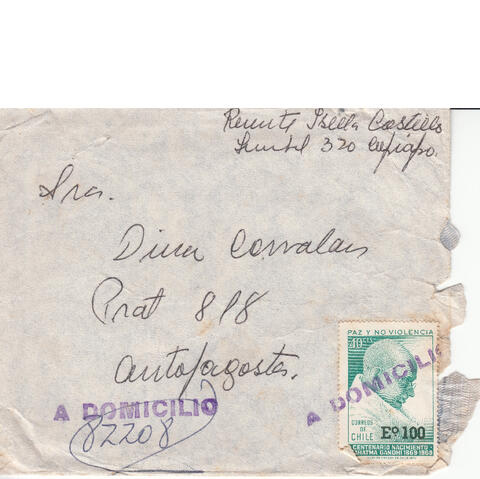 Remite Isella Castillo
320 Copiapo.
Sra.
Dina Corralan
Prat 818
Antofagasta.
A DOMICILIO
82208
PAZ Y NO VIOLENCIA
10 CTS
A DOMICILIO
CORREOS DE CHILE
Eº 100
CENTENARIO NACIMIENTO
MAHATMA GANDHI 1869 1969